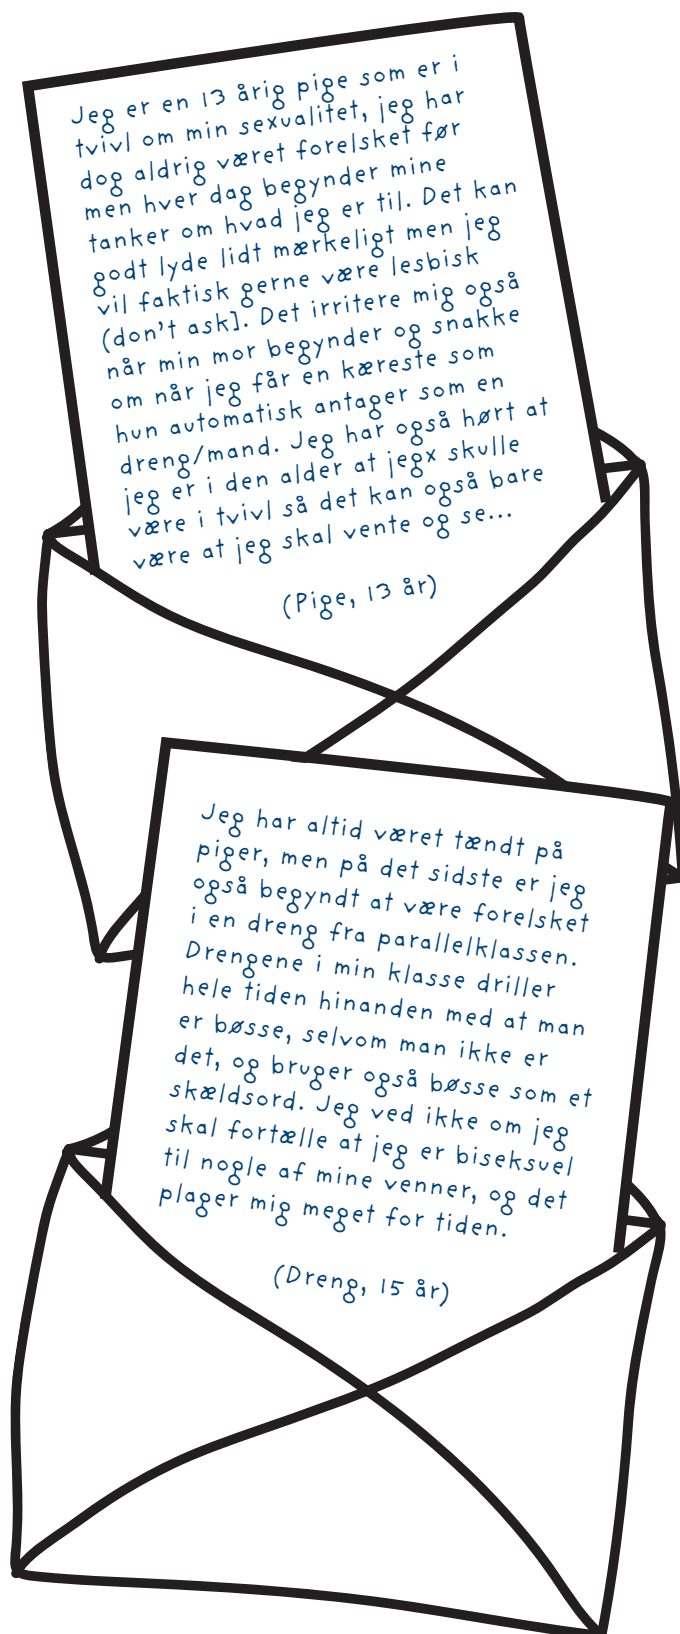 Jeg er en 13 årig pige som er i
tvivl om min sexualitet, jeg har
dog aldrig været forelsket før
men hver dag begynder mine
tanker om hvad jeg er til. Det kan
godt lyde lidt mærkeligt men jeg
vil faktisk gerne være lesbisk
(don't ask]. Det irritere mig også
når min mor begynder og snakke
om når jeg får en kæreste som
hun automatisk antager som en
dreng/mand. Jeg har også hørt at
jeg er i den alder at jegx skulle
være i tvivl så det kan også bare
være at jeg skal vente og se...
(Pige, 13 år)
Jeg har altid været tændt på
piger, men på det sidste er jeg
også begyndt at være forelsket
i en dreng fra parallelklassen.
Drengene i min klasse driller
hele tiden hinanden med at man
er bøsse, selvom man ikke er
det, og bruger også bøsse som et
skældsord. Jeg ved ikke om jeg
skal fortælle at jeg er biseksuel
til nogle af mine venner, og det
plager mig meget for tiden.
(Dreng, 15 år)